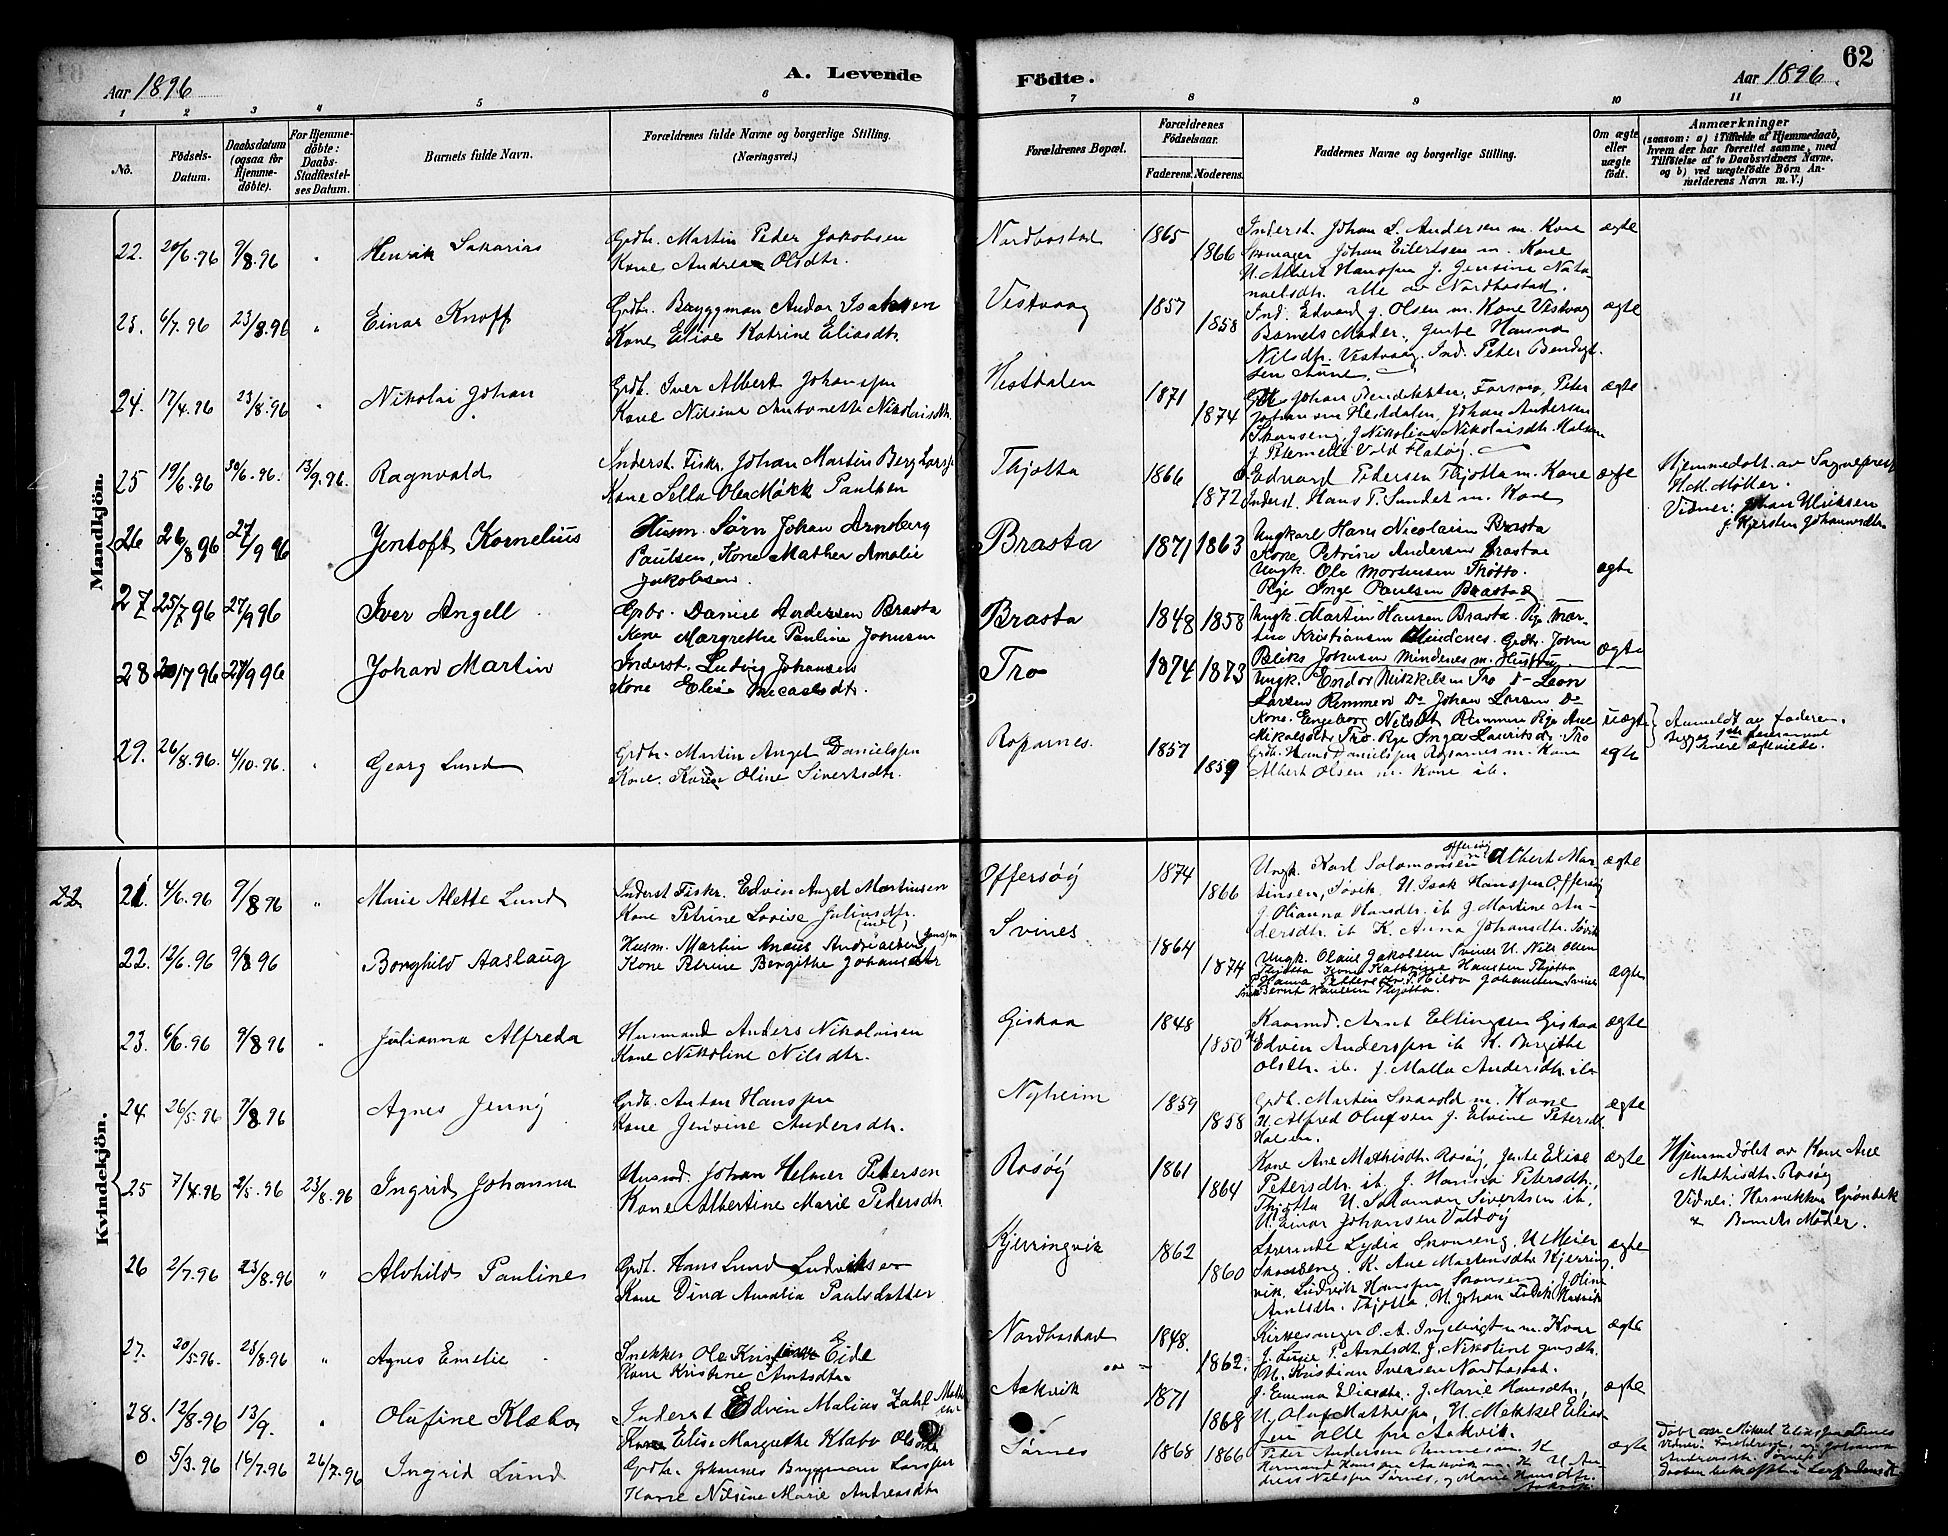 62
Aar 1896
A. Levende
Födte.
Aar 1896.
1 2 3 4 5 6 7 8 9 10 11
No.
Födsels-Datum.
Daabsdatum (ogsaa for Hjemme-döbte).
For Hjemme-döbte: Daabs-Stadfæstel-ses Datum.
Barnets fulde Navn.
Forældrenes fulde Navne og borgerlige Stilling.
(Næringsvei.)
Forældrenes Bopæl.
Forældrenes Födselsaar.
Faderens. Moderens.
Faddernes Navne og borgerlige Stilling.
Om ægte eller uægte födt.
Anmærkninger
(saasom: a) i Tilfælde af Hjemmedaab,
hvem der har forrettet samme, med
Tilföielse af to Daabsvidners Navne.
og b) ved uægtefödte Börn An-
melderens Navn m. V.)
Mandkjön.
22. 20/6.96 9/8.96 " Henrik Sakarias
Grdbr. Martin Peder Jakobsen
Kone Andrea Olsdtr.
Nordbostad 1865 1866
Inderst. Johan L. Andersen m. Kone
Skomager Johan Eilertsen m. Kone
U. Albert Hanssen J. Jensine Nata-
naelsdtr. alle av Nordbostad.
ægte
23. 6/7.96 23/8.96 " Einar Knoff
Grdbr. Bryggman Andor Isaksen
Kone Elise Katrine Eliasdtr.
Vestvaag 1857 1858
Ind. Edvard J. Olsen m. Kone Vestvaag
Barnets Moder, Jente Hanna
Nilsdtr. Vestvaag. Ind. Peter Bendigt-
sen Aune
ægte
24. 17/4.96 23/8.96 " Nikolai Johan
Grdb. Iver Albert Johanssen
Kone Nilsine Antonette Nikolaisdtr.
Hestdalen 1871 1874
Johan Bendiktsen, Forsmo, Peter
Johansen Hestdalen, Johan Andersen
J. Nikoline Nikolaisdtr.
J. Peternelle Vold Flatøy.
ægte
25 19/6.96 30/6.96. 13/9.96. Ragnvald
Inderst. Fiskr. Johan Martin Berg Larss.
Kone Sella Olea Mørk Paulsen
Thjotta 1866 1872
Edvard Pedersen Thjotta m. Kone
Inderst. Hans P. Sundet m. Kone
ægte
Hjemmedøbt av Sogneprest
H. M. Møller.
Vidner: Johan Ulriksen
J. Kjersten Johannesdtr.
26 26/8 96 27/9 96 Jentoft Kornelius
Husm. Sørn Johan Arnsberg
Paulsen, Kone Mathea Amalie
Jakobsen.
Brasta 1871 1863
Ungkarl Hans Nicolaisen Brasta
Kone Petrine Andersen Brastae
Ungk. Ole Mortensen Thøtto.
Pige Inge Paulsen Brastad
ægte
27 25/7 96 27/9 96 Iver Angell
Grbr. Daniel Andersen Brasta
Kone Margrethe Pauline Johnsen
Brasta 1848 1858
Ungk. Martin Hansen Brasta Pige Mar-
tine Kristiansen Mindenes. Grdb. John
Johnsen Mindenes m. Hustru
ægte
28 20/7 96 27/9 96 Johan Martin
Inderst. Ludvig Johansen
Kone Elise Micaelsdtr.
Tro 1874 1873
Ungk. Endor Mikkelsen Tro Do Leon
Larsen Remmen Do Johan Larsen Do
Kone Engeborg Nilsdt Remmen Pige Ane
Mikalsdtr. Tro Pige Inga Lauritsdtr. Tro
uægte
Anmeldt av faderen.
29. 26/8.96. 4/10.96. " Georg Lund
Grdbr. Martin Angel Danielssen
Kone Karen Oline Sivertsdtr.
Roparnes. 1857 1859
Grdb. Hans Danielssen Roparnes m. Kone
Albert Olsen m. Kone ib.
ægte
Kvindekjön.
22 21. 4/6.96 9/8 96 " Marie Alette Lund
Inderst Fiskr. Edvin Angel Martinsen
Kone Petrine Lovise Juliusdtr.
Offersøy 1874 1866
Ungk. Karl Salomonsen Offersøy Albert Mar-
tinsen, Søvik U. Isak Hanssen Offersøy
J. Olianna Hansdtr. ib J. Martine An-
dersdtr. ib K. Anna Johansdtr. Søvik
ægte
22. 12/6.96 9/8 96 Borghild Aaslaug
Husm. Martin Anæus Andreassen (Jenssen)
Kone Petrine Bergithe Johansdtr
Svines 1864 1874
Ungk. Olaus Jakobsen Svines U. Nils Olsen
Thjøtta Kone Kathrine Hansen Thjøtta
P. Hanna Pettersdtr. P. Hilda Johansen Svines
Bernt Hansen Thjøtta.
ægte
23. 6/6.96 9/8 96 " Julianna Alfreda
Husmand Anders Nikolaisen
Kone Nikoline Nilsdtr.
Giskaa 1848 1850
Kaarmd. Arnt Ellingsen Giskaa
U. Edvin Anderssen ib K. Birgithe
Olsdtr. ib. J. Malla Andersdtr. ib
ægte
24 26/5.96 7/8.96 Agnes Jenny
Grdb. Anton Hanssen
Kone Jensine Andersdtr.
Nyheim 1859 1858
Grdb. Martin m. Kone
U. Alfred Olufsen J. Elvine Petersdt.
Halsen.
ægte
25 7/4.96 2/5.96 23/8.96 Ingrid Johanna
Husmd. Johan Helmer Peterson
Kone Albertine Marie Pedersdtr.
Rosøy 1861 1864
Kone Ane Mathisdtr. Rosøy, Jente Elise
Petersdtr. ib. J. Hansia Petersdtr.
Thjøtta U. Salamon Sivertsen ib.
U. Einar Johansen Valdøy
ægte
Hjemmedøbt av Kone Ane
Mathisdtr. Rosøy
Vidner: Grønbek
& Barnets Moder.
26 2/7.96 23/8.96 " Alvhild Pauline
Grdb. Hans Lund Ludviksen
Kone Dina Amalia Paulsdatter
Kjerringvik 1862 1860
Lærerinde Lydia Skonseng, U. Meier
Skonseng. K. Ane Martensdtr. Kjerring-
vik, Ludvik Hanssen Skonseng, J. Oline
Arntsdtr. Thjøtta, U. Johan
ægte
27. 20/5.96. 23/8.96 " Agnes Emelie
Snekker Ole Kristian Eide
Kone Kristine Arntsdtr.
Nordbostad 1848. 1862.
Kirkesanger O. A. Ingebrigtsen m. Kone
J. Lusie P. Arntsdt. J. Nikoline Jensdtr.
U. Kristian Iversen Nordbostad.
ægte
28. 12/8.96 13/9. " Olufine Klæbo
Inderst Edvin Malius Zahl
Kone Elise Margrethe Klæbo Olsdtr
Aakvik 1871 1868
J. Emma Eliasdtr. J. Marie Hansdtr.,
U. Oluf Mathissen, U. Mekkel Elias-
sen alle fra Aakvik.
ægte
0 5/3.96 16/7.96 26/7.96 Ingrid Lund
Grdbr. Johannes Bryggman Larssen
Kone Nilsine Marie Andreasdtr
Sørnes 1868 1866
Peter Andersen
Hermand Hanssen Aakvik m. K U. An-
dreas Nilssen Sørnes, og Marie Hansdtr.
Aakvik
ægte
Døbt av Mikael Eliassen
Vidner:
Andreasdtr. Sørnes